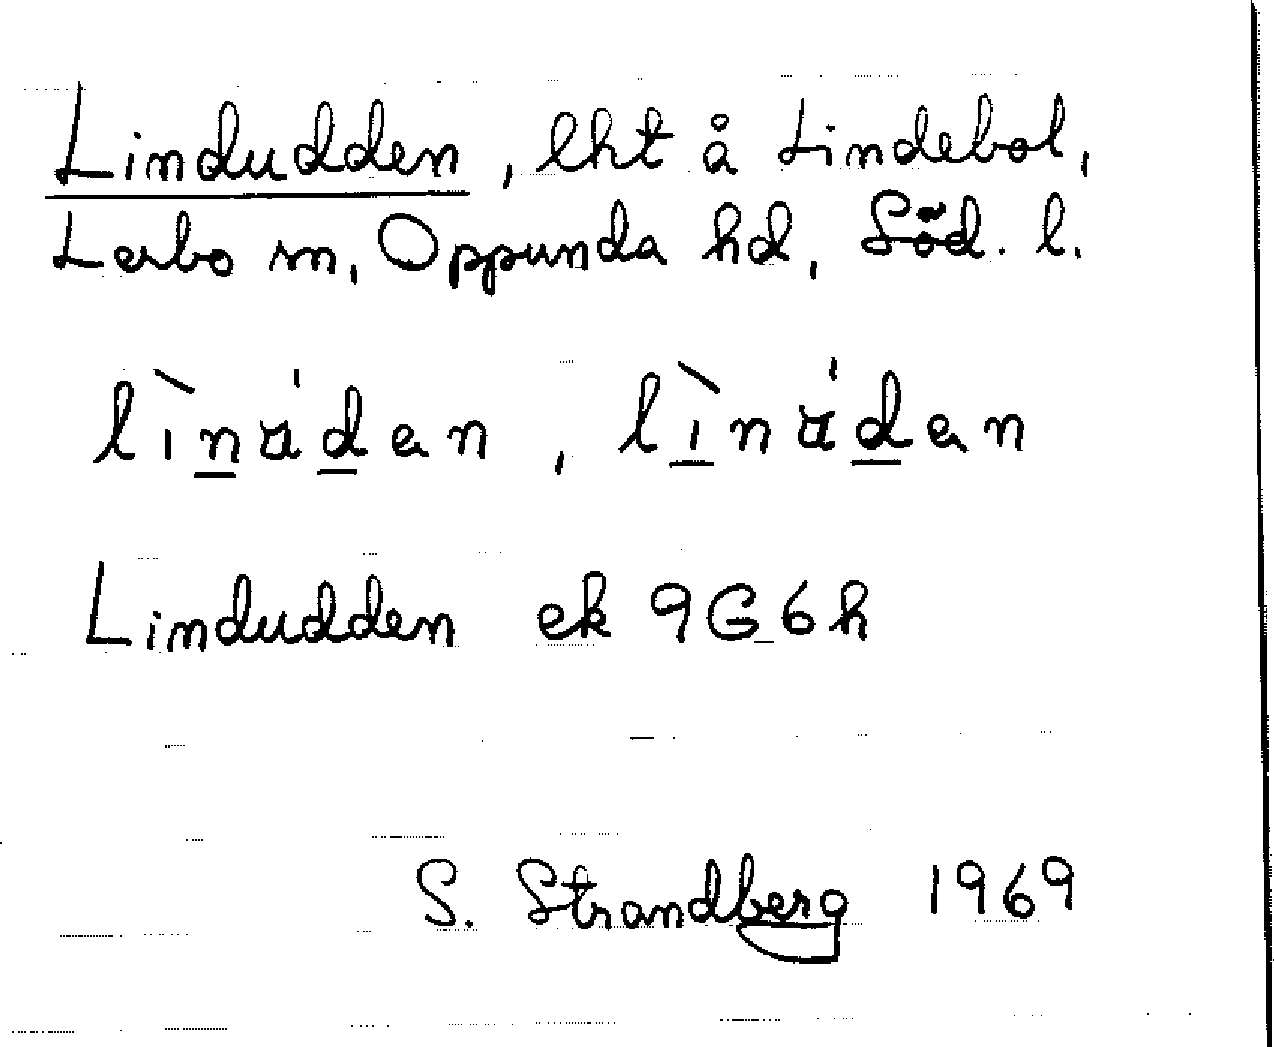 Lindudden, lht å Lindebol,
Lerbo sn, Oppunda hd, Söd. l.
lìnu̇dan, lìnu̇dan
Lindudden ek 9G6h
S. Strandberg 1969